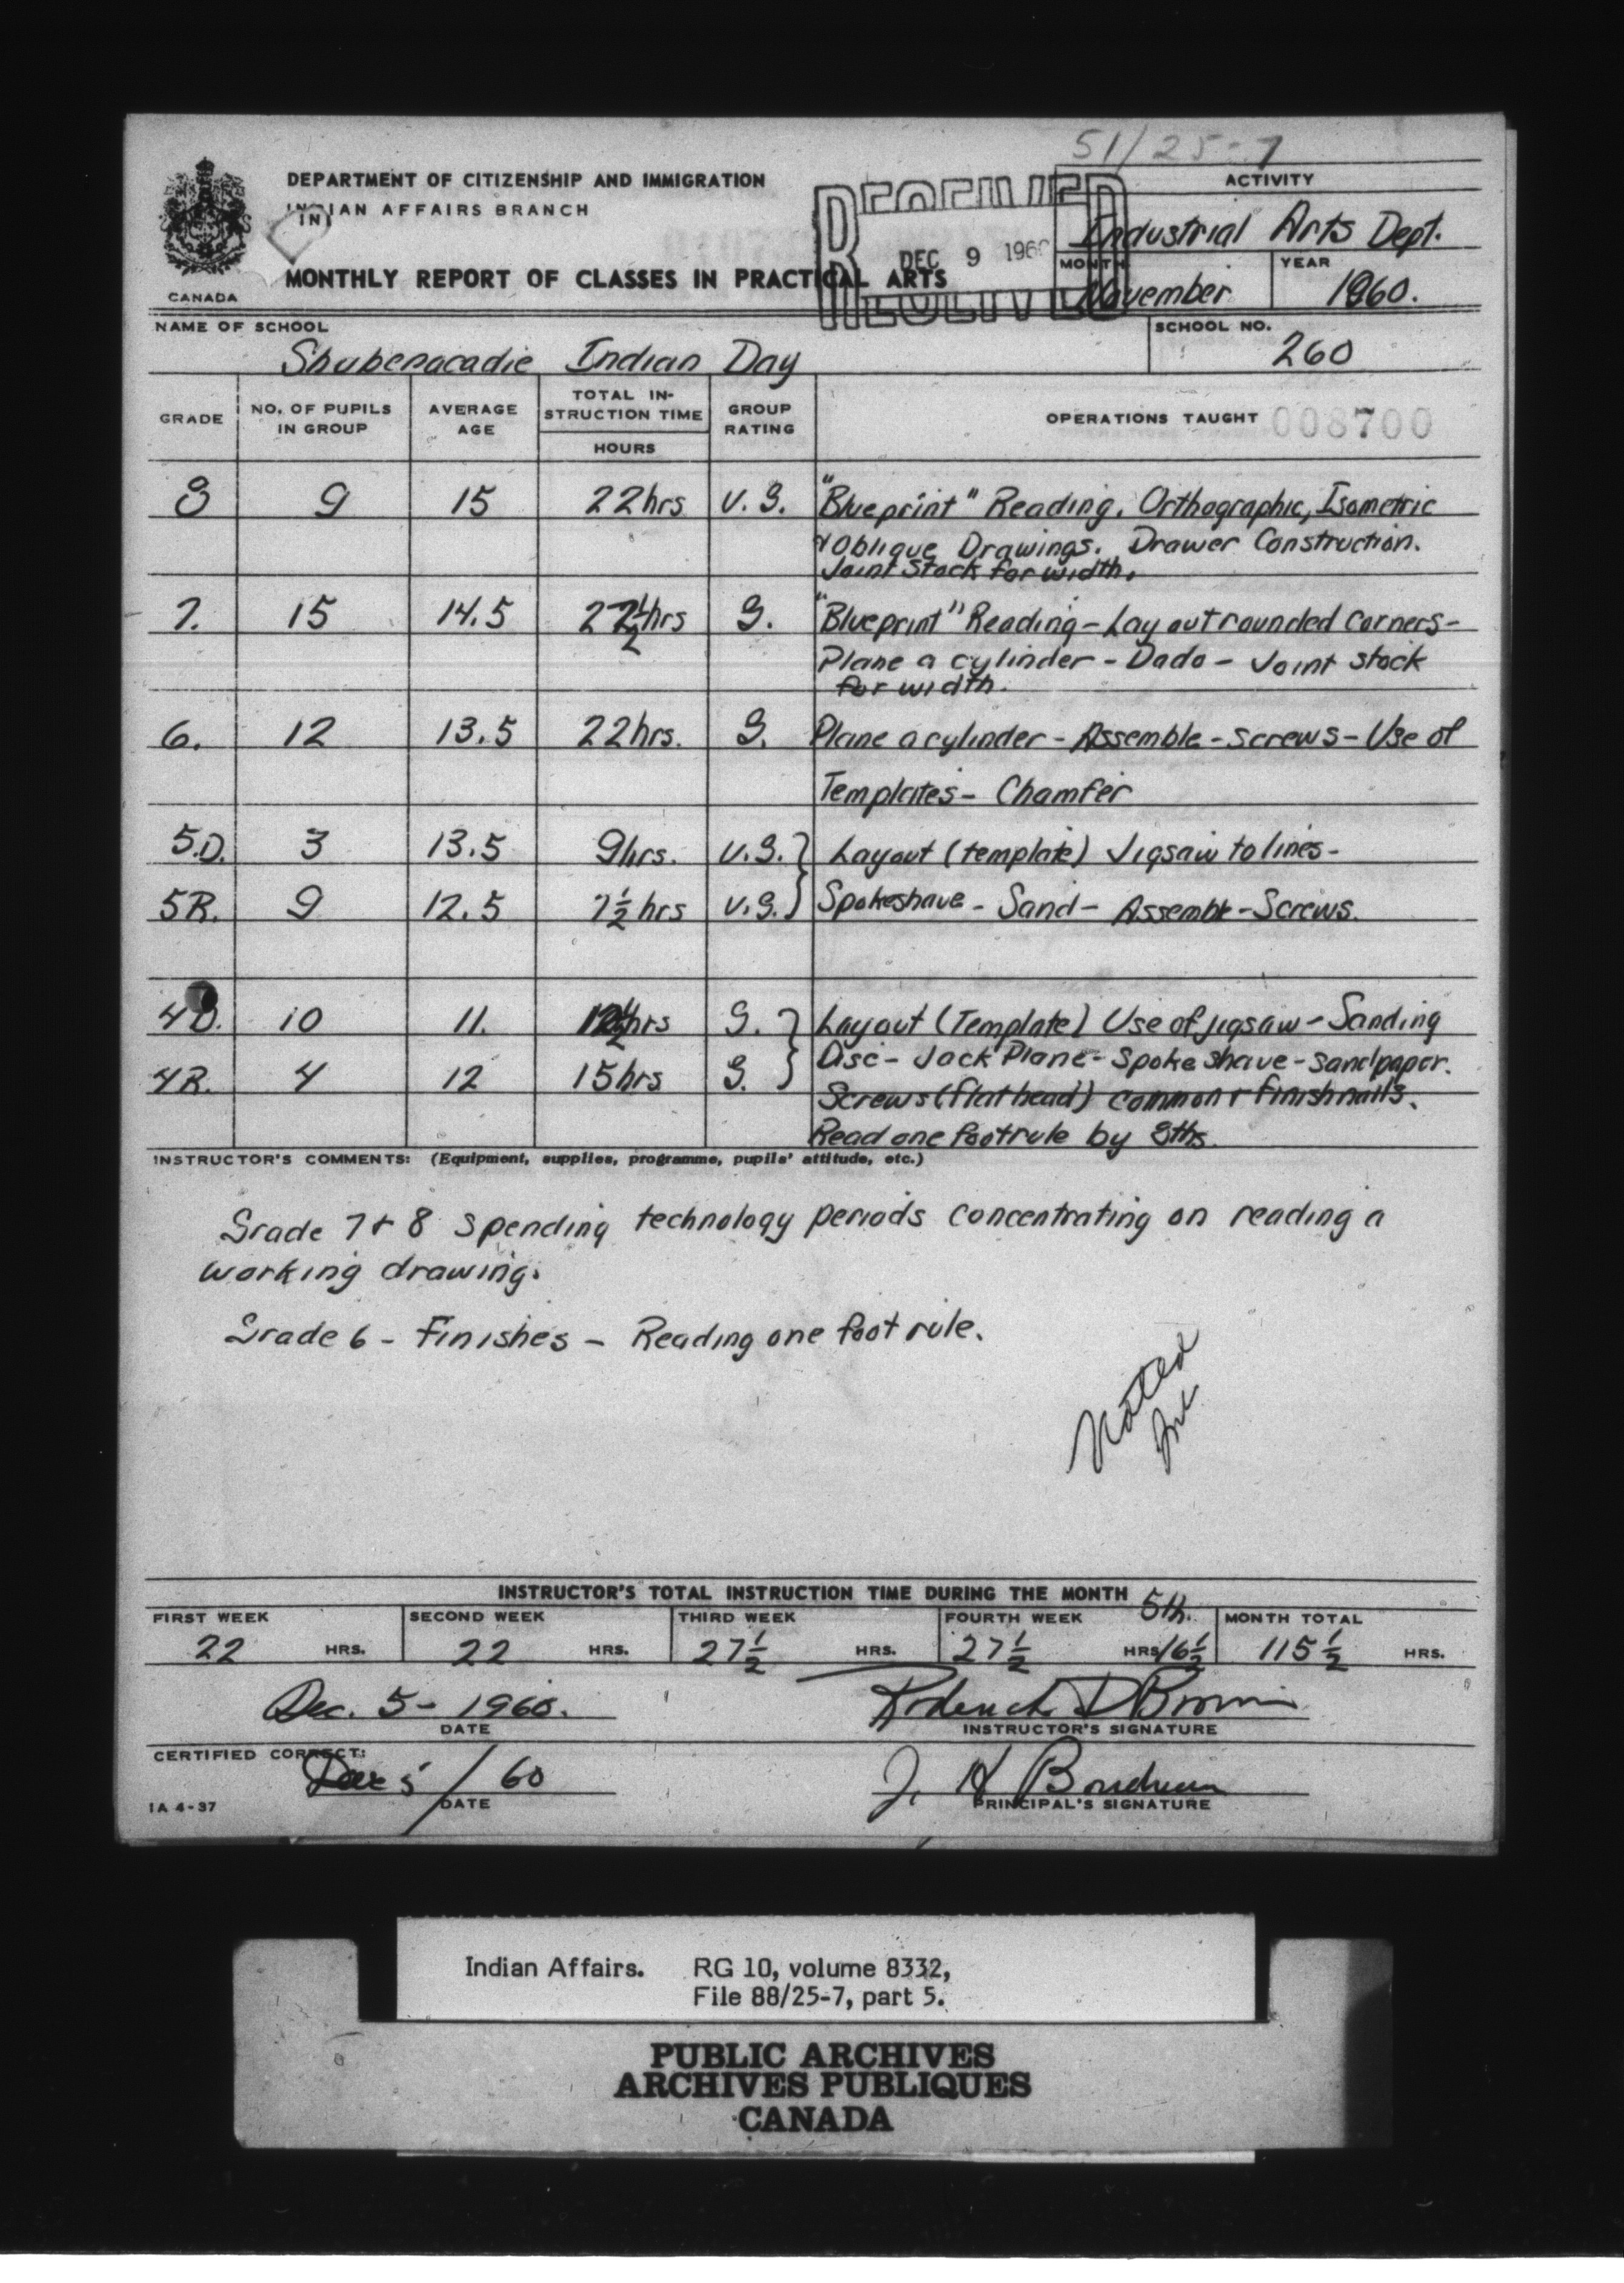 51/25-7
DEPARTMENT OF CITIZENSHIP AND IMMIGRATION
ACTIVITY
INDIAN AFFAIRS BRANCH
IN
RECEIVED
DEC 9 1960
RECEIVED
Industrial Arts Dept.
MONTH
YEAR
MONTHLY REPORT OF CLASSES IN PRACTICAL ARTS
November
1960.
CANADA
NAME OF SCHOOL
SCHOOL NO.
Shubenacadie Indian Day
260
GRADE
NO. OF PUPILS IN GROUP
AVERAGE AGE
TOTAL IN-STRUCTION TIME
HOURS
GROUP RATING
OPERATIONS TAUGHT
008700
8 9 15 22 hrs V. G. "Blueprint" Reading. Orthographic, Isometric
& Oblique Drawings. Drawer Construction.
Joint Stock for width.
7. 15 14.5 22½ hrs G. "Blueprint" Reading - Lay out rounded corners -
Plane a cylinder - Dado - Joint stock
for width.
6. 12 13.5 22 hrs. G. Plane a cylinder - Assemble - screws - Use of
Templates - Chamfer
5.D. 3 13.5 9 hrs. V.G. } Layout (template) Jigsaw to lines -
5R. 9 12.5 7½ hrs V.G. } Spokeshave - Sand - Assemble - Screws.
4D. 10 11. hrs G. } Layout (Template) Use of jigsaw - Sanding
Disc - Jack Plane - Spokeshave - sandpaper.
4R. 4 12 15 hrs G. }
Screws (flat head) common & finish nails.
Read one foot rule by 8ths.
INSTRUCTOR'S COMMENTS: (Equipment, supplies, programme, pupils' attitude, etc.)
Grade 7 & 8 spending technology periods concentrating on reading a
working drawing.
Grade 6 - Finishes - Reading one foot rule.
Noted
INSTRUCTOR'S TOTAL INSTRUCTION TIME DURING THE MONTH
FIRST WEEK
SECOND WEEK
THIRD WEEK
FOURTH WEEK
5th.
MONTH TOTAL
22 HRS.
22 HRS.
27½ HRS.
27½ HRS.
16½
115½ HRS.
Dec. 5 - 1960.
Roderick D Brown
DATE
INSTRUCTOR'S SIGNATURE
CERTIFIED CORRECT:
Dec 5 / 60
J. H
IA 4-37
DATE
PRINCIPAL'S SIGNATURE
Indian Affairs. RG 10, volume 8332,
File 88/25-7, part 5.
PUBLIC ARCHIVES
ARCHIVES PUBLIQUES
CANADA